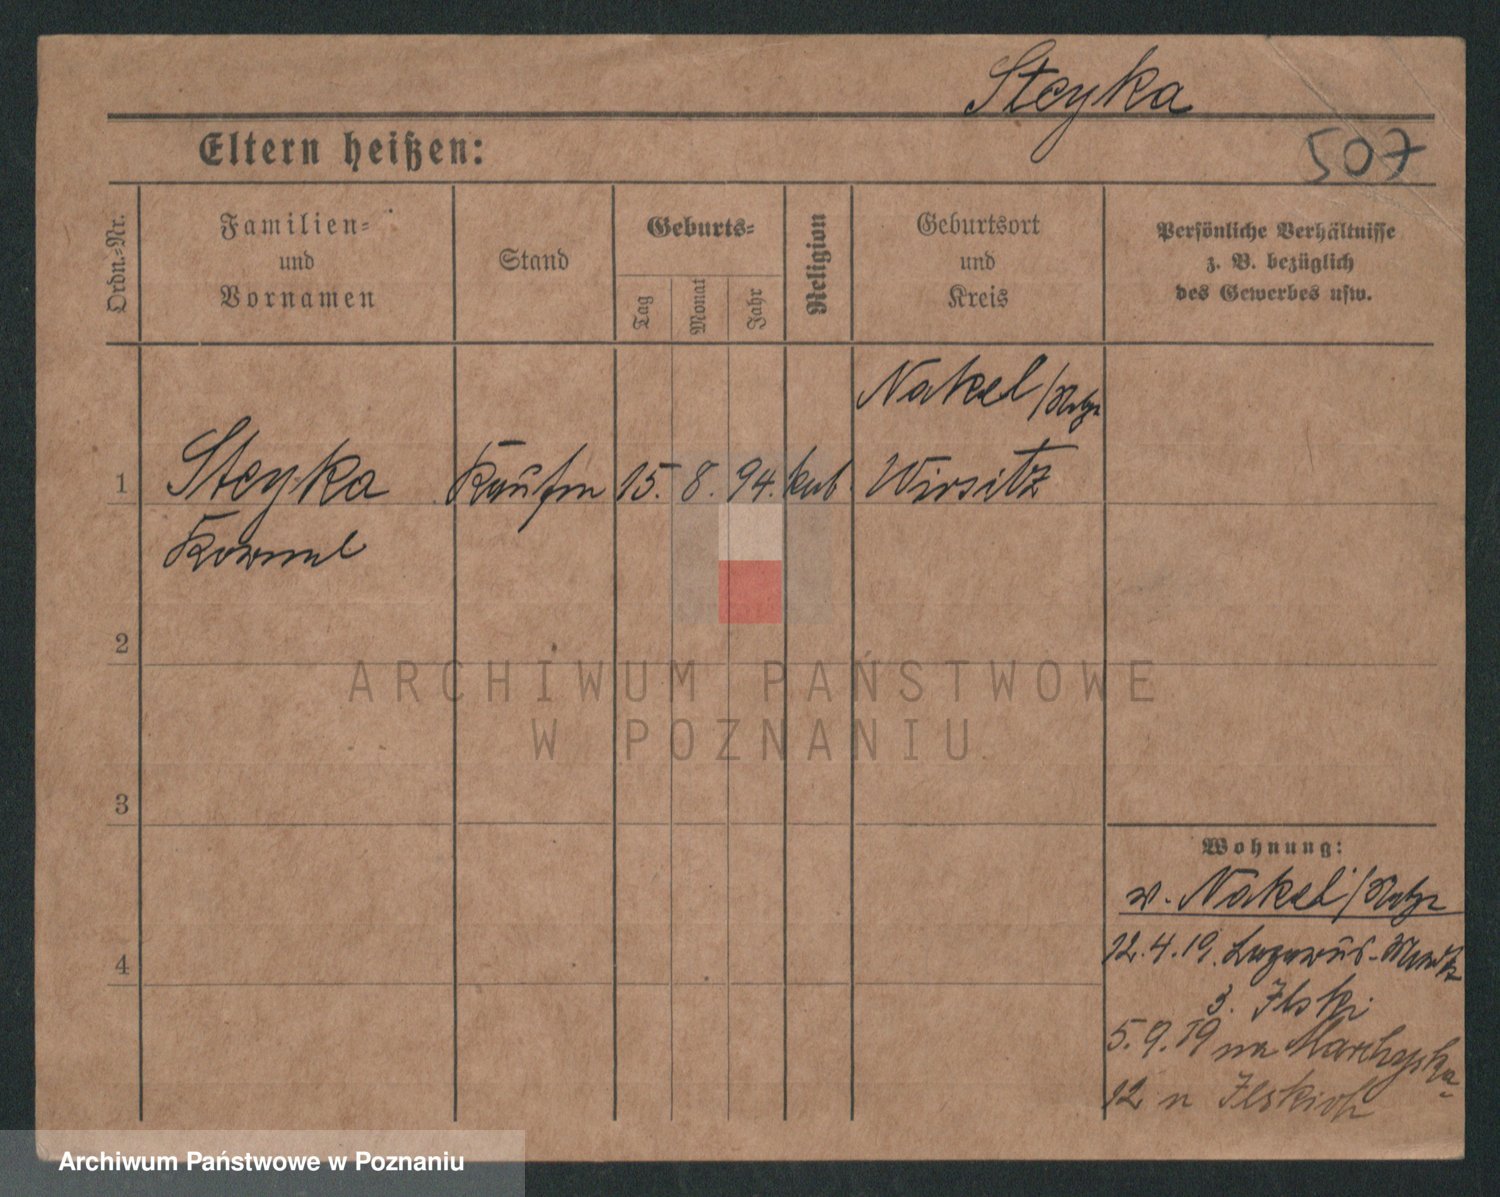 Steyka
507
Eltern heißen:
Ordn.-Nr.
Familien-
und
Vornamen
Stand
Geburts-
Tag
Monat
Jahr
Religion
Geburtsort
und
Kreis
Persönliche Verhältnisse
z. B. bezüglich
des Gewerbes usw.
Nakel /Netze
1 Steyka Kaufm 15. 8. 94. kat. Wirsitz
2
3
4
Wohnung:
v. Nakel /Netze
12.4.19. Lazarus-Markt
3. Ilski
5.9.19 na
12 u Ilskich
ARCHIWUM PAŃSTWOWE
W POZNANIU
Archiwum Państwowe w Poznaniu